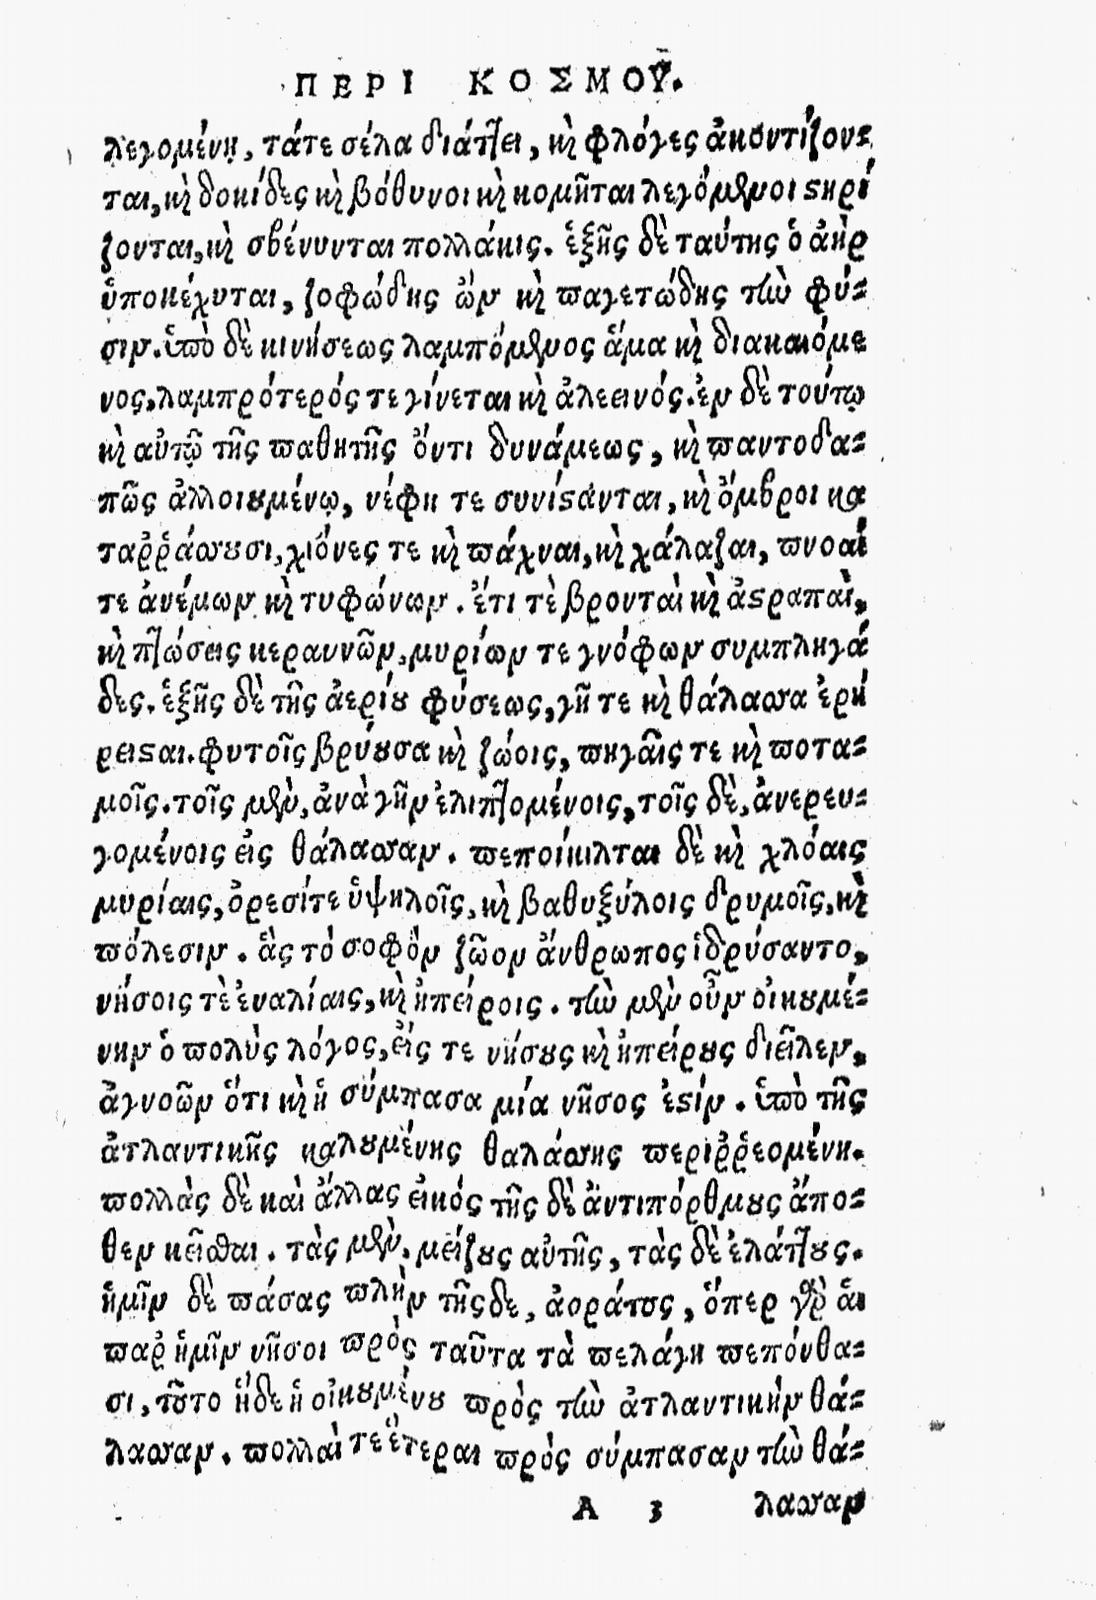 ΠΕΡΙ ΚΟΣΜΟΥ.
λεγομένη, τάτε σέλα διάττει, καὶ φλόγες ἀκοντίζον-
ται, καὶ δοκίδες καὶ βόθυνοι καὶ κομῆται λεγόμενοι στηρί
ζονται, καὶ σβέννυνται πολλάκις. ἑξῆς δὲ ταύτης ὁ ἀὴρ
ὑποκέχυται, ζοφώδης ὢν καὶ παγετώδης τὴν φύ-
σιν. ὑπὸ δὲ κινήσεως λαμπόμενος ἅμα καὶ διακαιόμε
νος, λαμπρότερός τε γίνεται καὶ ἀλεεινός. ἐν δὲ τούτῳ
καὶ αὐτῷ τῆς παθητῆς ὄντι δυνάμεως, καὶ παντοδα-
πῶς ἀλλοιουμένῳ, νέφη τε συνίστάνται, καὶ ὄμβροι κα
ταῤῥάσσουσι, χιόνες τε καὶ πάχναι, καὶ χάλαζαι, πνοαί
τε ἀνέμων καὶ τυφώνων. ἔτι τὲ βρονταὶ καὶ ἀστραπαὶ,
καὶ πτώσεις κεραυνῶν, μυρίων τε γνόφων συμπληγά
δες. ἑξῆς δὲ τῆς ἀερίου φύσεως, γῆ τε καὶ θάλασσα ἐρή
ρεισαι. φυτοῖς βρύουσα καὶ ζώοις, πηγαῖς τε καὶ ποτα-
μοῖς. τοῖς μὲν, ἀνὰ γῆν ἐλιττομένοις, τοῖς δὲ, ἀνερευ-
γομένοις εἰς θάλασσαν. πεποίκιλται δὲ καὶ χλόαις
μυρίαις, ὄρεσίτε ὑψηλοῖς, καὶ βαθυξύλοις δρυμοῖς, καὶ
πόλεσιν. ἃς τὸ σοφὸν ζῶον ἄνθρωπος ἱδρύσαντο,
νήσοις τὲ ἐναλίαις, καὶ ἠπείροις. τὴν μὲν οὖν οἰκουμέ-
νην ὁ πολὺς λόγος, εἰς τε νήσους καὶ ἠπείρους διεῖλεν,
ἀγνοῶν ὅτι καὶ ἡ σύμπασα μία νῆσος ἐστίν. ὑπὸ τῆς
ἀτλαντικῆς καλουμένης θαλάσσης περιῤῥεομένη.
πολλὰς δὲ καὶ ἄλλας εἰκός τῆς δὲ ἀντιπόρθμους ἄπο-
θεν κεῖσθαι. τὰς μὲν, μείζους αὐτῆς, τὰς δὲ ἐλάττους.
ἡμῖν δὲ πάσας πλὴν τῆςδε, ἀοράτους, ὅπερ γὰρ αἱ
παρ ἡμῖν νῆσοι πρὸς ταῦτα τὰ πελάγη πεπόνθα-
σι, τοῦτο ἥδε ἡ οἰκουμένου πρὸς τὴν ἀτλαντικὴν θά-
λασσαν. πολλαὶ τε ἕτεραι πρὸς σύμπασαν τὴν θά-
A 3 λασσαν